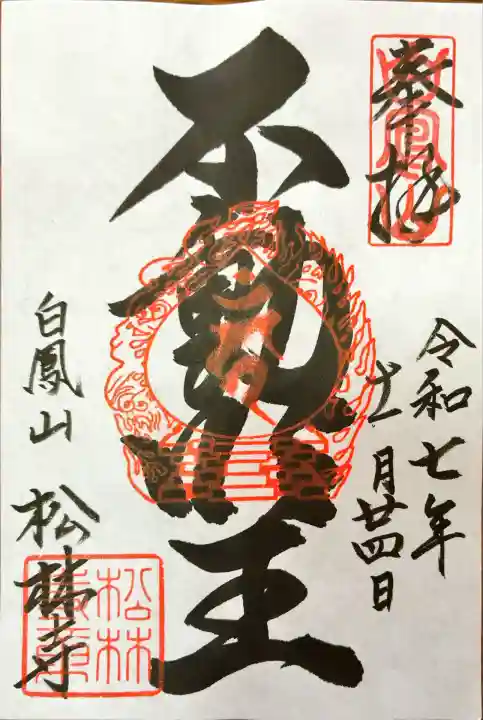 奉拝
令和七年
十一月廿四日
不動明王
白鳳山 松林寺
白鳳山
松林